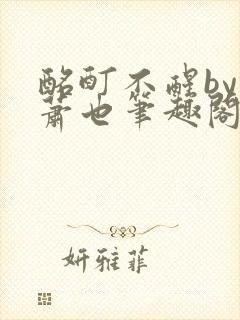 酩酊不醒by
萧也笔趣阁
妍雅菲